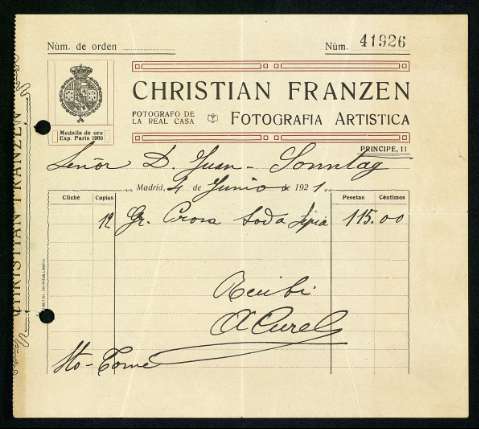 Núm. de orden
Núm. 41926
CHRISTIAN FRANZEN
FOTOGRAFO DE LA REAL CASA
FOTOGRAFIA ARTISTICA
Medalla de oro
Exp. París 1900
PRINCIPE, 11
Señor D. Juan Sonntag
Madrid, 4 de Junio de 1921.
Cliché Copias Pesetas Céntimos
12 Gr. toda Sepia 115.00
Recibi
Sto-Tomé
CHRISTIAN FRANZEN